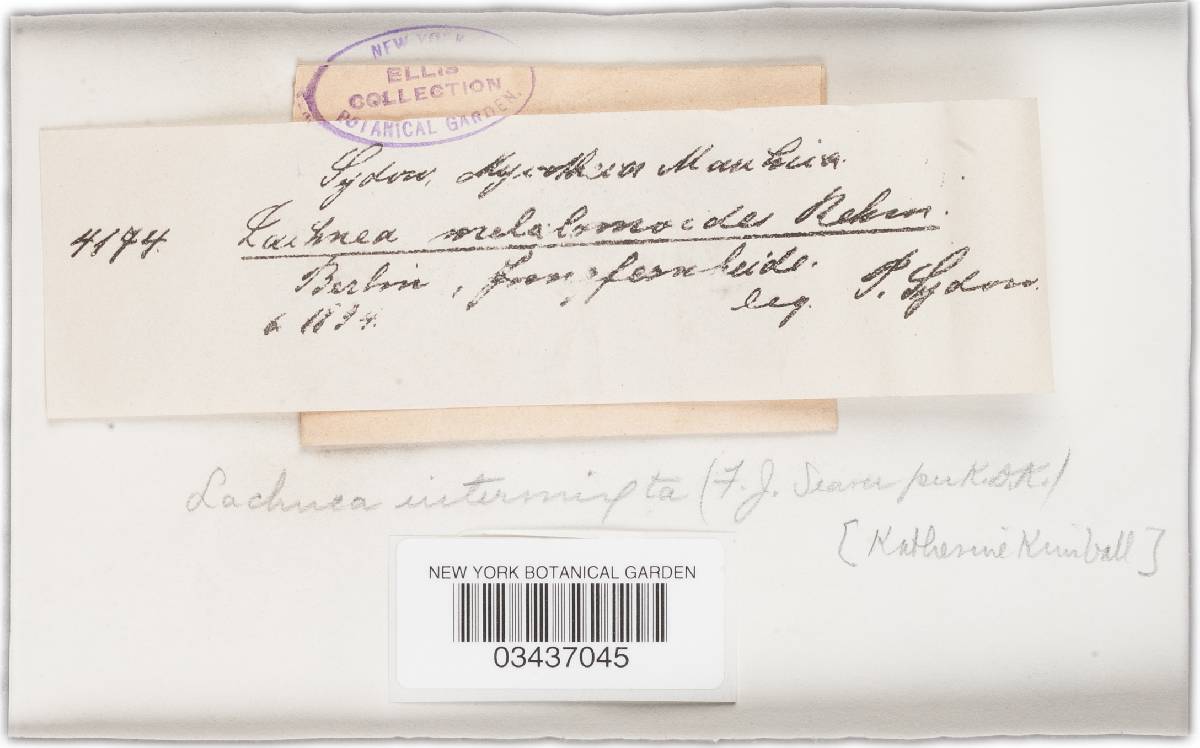 NEW YORK
ELLIS
COLLECTION
BOTANICAL GARDEN.
Sydow, Mycotheca Marchica.
4194.
Lachnea melalomoides Rehm.
Berlin, Jungfernheide.
leg. P. Sydow.
6 1894.
Lachnea intermixta (F. J. Seaver per K.D.K.)
[Katherine Kimball]
NEW YORK BOTANICAL GARDEN
03437045